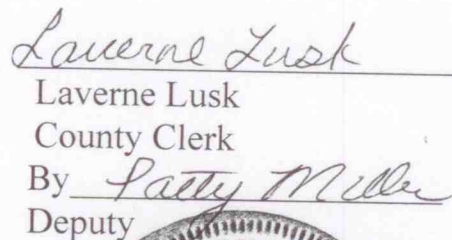 Laverne Lusk
Laverne Lusk
County Clerk
By Patty Miller
Deputy